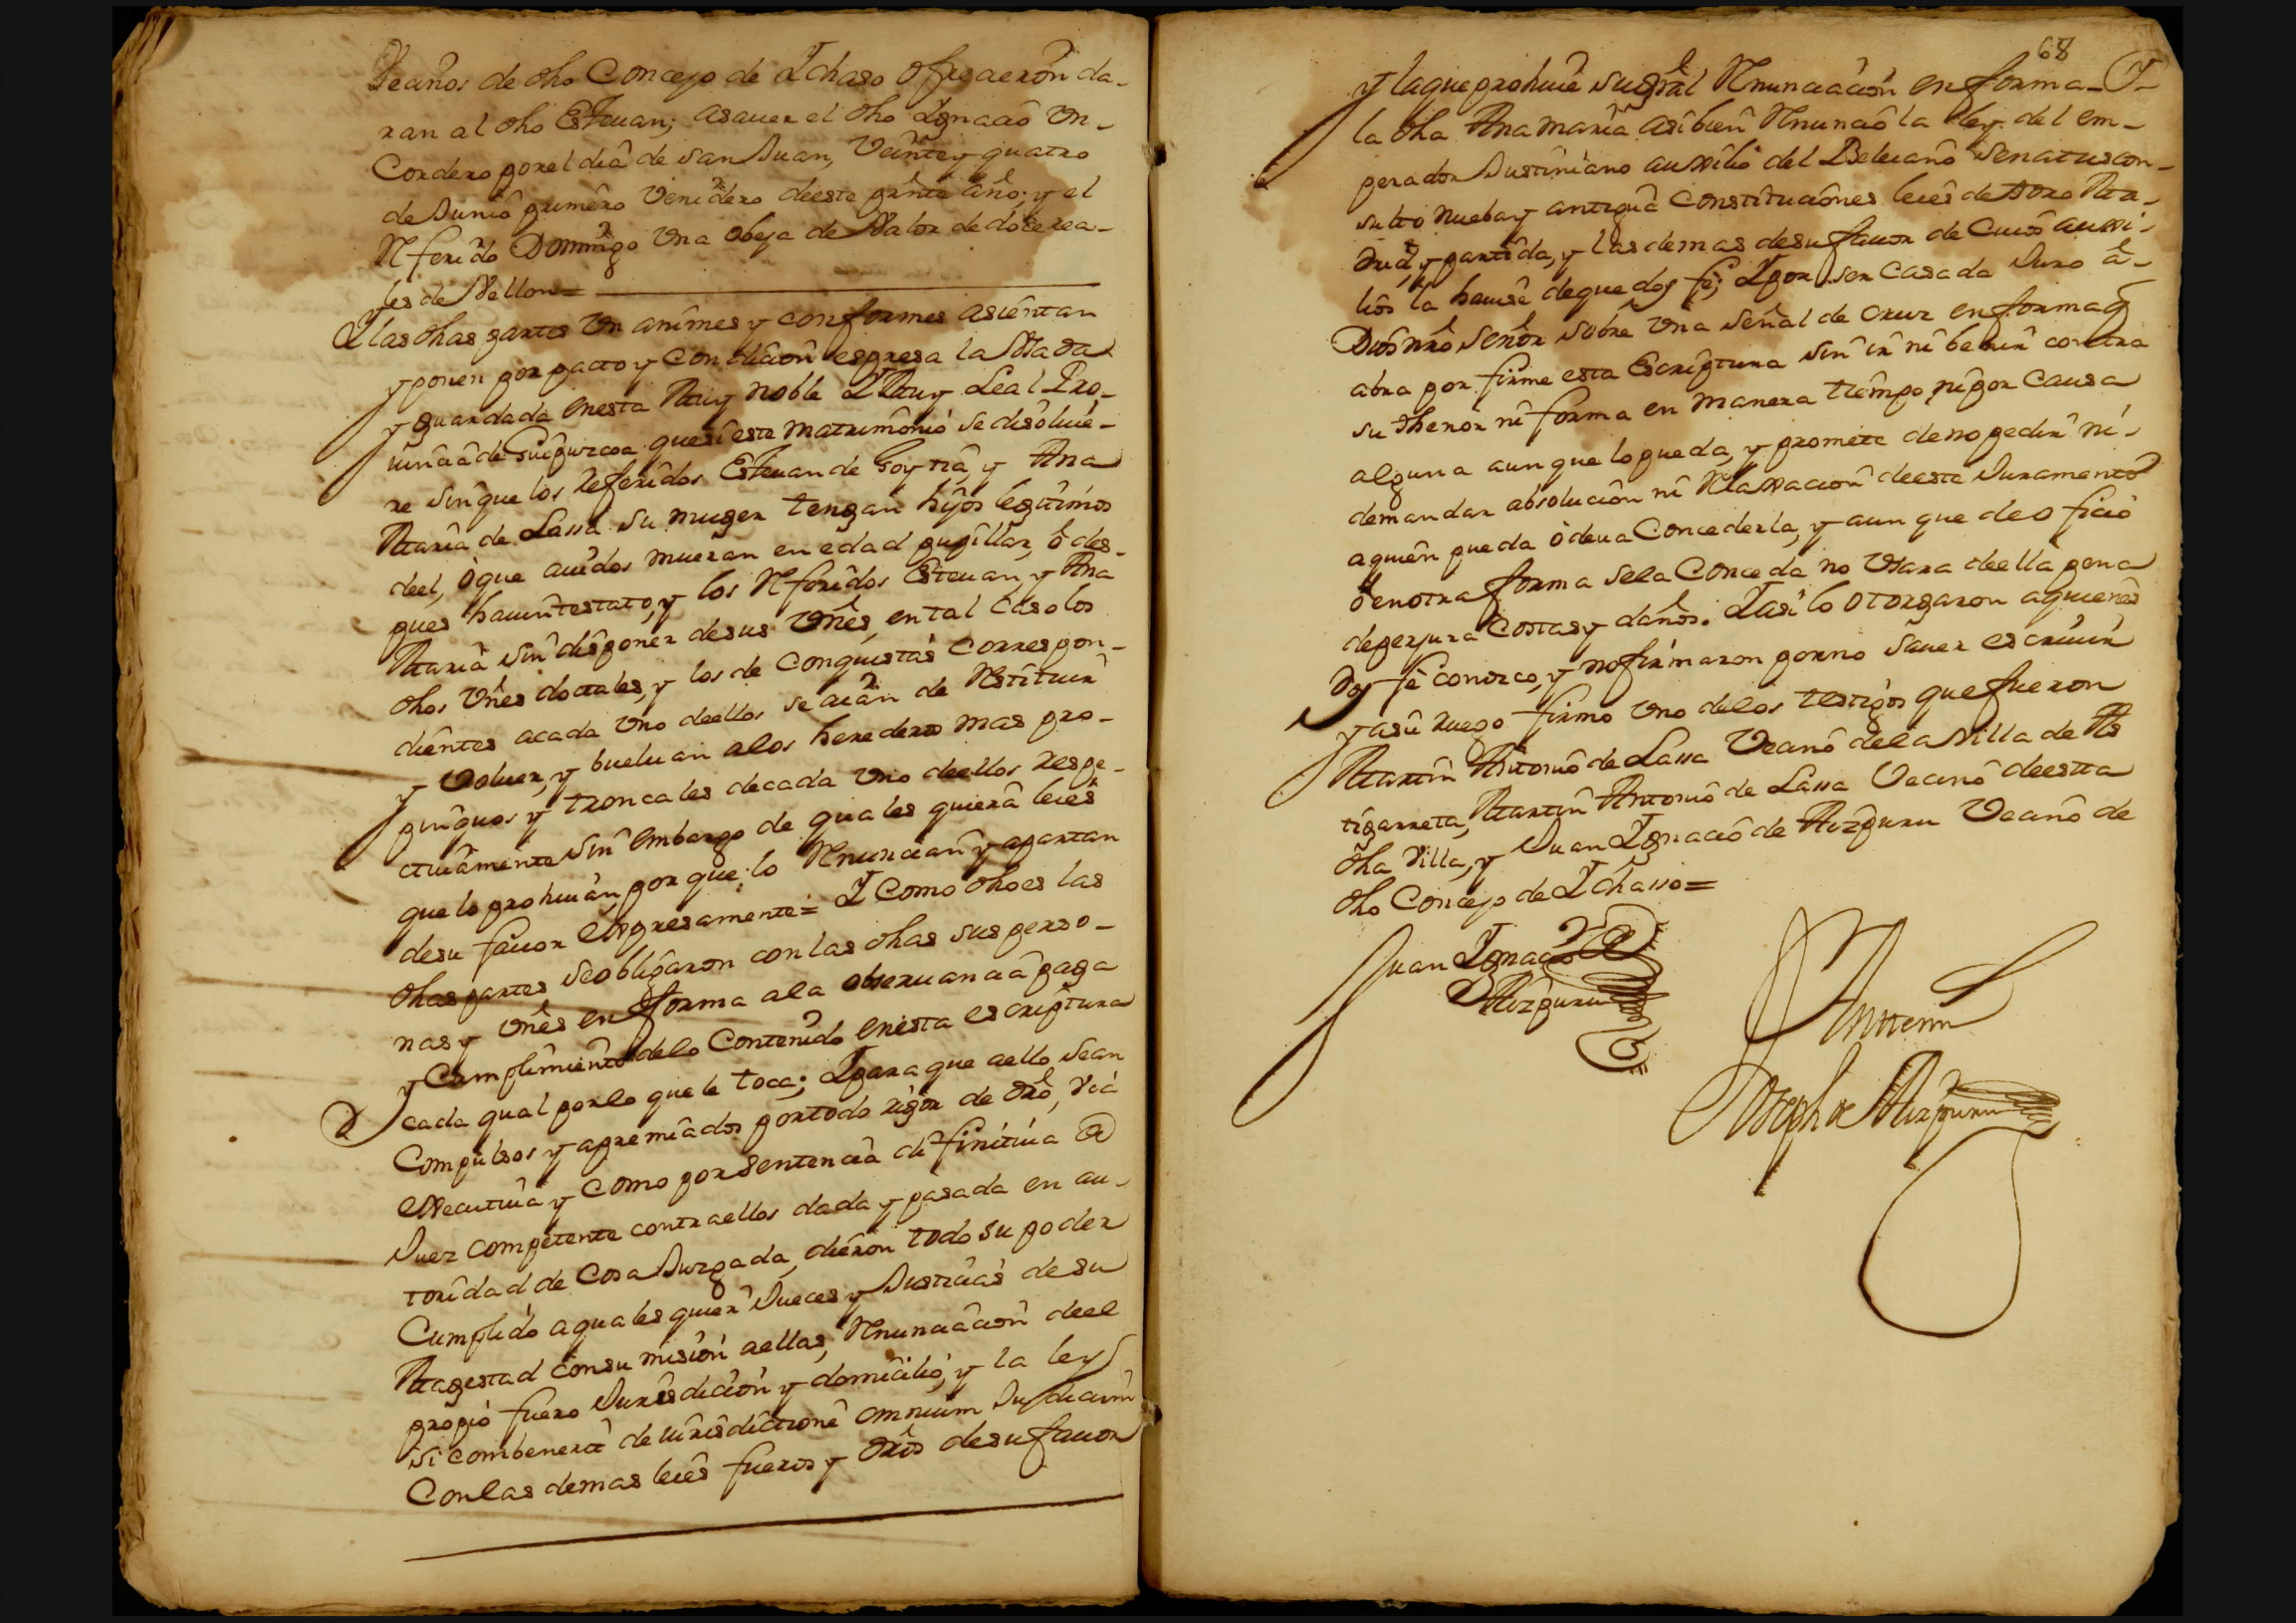 Veçinos de dho Concejo de Ychaso ofreçieron da-
ran al dho Esteuan; asauer el dho Ygnaçio Vn
Cordero por el dia de san Juan, Veinte y quatro
de Junio primero Venidero de este preste año; y el
Referido Domingo Vna obeja de Valor de doçe rea-
les de Vellon=
Y las dhas partes Vn animes y conformes asientan
y ponen por pacto y condiçion espresa la Vsada
y guardada en esta Muy noble Y Muy Leal Pro-
uinçia de Guipuzcoa que si este matrimonio se disoluie-
re sin que los referidos Esteuan de Goytia y Ana
Maria de Lassa su muger tengan hijos legitimos
de el, ò que auidos mueran en edad pupillar, ò des-
pues hauintestato, y los Referidos Esteuan, y Ana
Maria sin disponer de sus Vnes, en tal caso los
dhos Vnes dotales, y los de Conquistas Correspon-
dientes acada Vno de ellos se aian de Restituir
y Voluer, y bueluan a los herederos mas pro-
pinquos y troncales de cada Vno de ellos respe-
ctiuamente sin embargo de quales quiera leies
que lo prohiuan, por que lo Renunçian y apartan
de su fauor Expresamente= Y Como dho es las
dhas partes se obligaron con las dhas sus perso-
nas y Vnes en forma a la obseruançia paga
y Cumplimiento de lo Contenido en esta escriptura
cada qual por lo que le toca; Y para que a ello sean
Compulsos y apremiados por todo rigor de dro, via
executiua y como por sentençia difinitiua de
Juez competente contra ellos dada y pasada en au-
toridad de Cosa Juzgada, dieron todo su poder
Cumplido a quales quier Jueces y Justiçias de su
Magestad con su mision a ellas, Renunçiaçion de el
propio fuero Jurisdiçion y domiçilio, y la ley
si combenerit de iurisdictione omnium Judicum
Con las demas leies fueros y dros de su fauor
68
y la que prohiue su gral Renunçiaçion en forma- Y
la dha Ana maria asi bien Renunçiò la ley del em-
perador Justiniano auxilio del Beleiano senatuscon-
sulto nueba y antigua Constituçiones leies de toro Ma-
drid, y partida, y las demas de su fauor de Cuios auxi-
lios la hauisè de que doy fè; Y por ser Casada Juro â
Dios nro señor sobre Vna señal de cruz en forma q
abra por firme esta Escriptura sin ir ni benir contra
su thenor ni forma en manera tiempo ni por Causa
alguna aun que lo pueda, y promete de no pedir ni
demandar absoluçion ni Relaxaçion de este Juramento
a quien pueda ò deua Concederla, y aun que de ofiçio
ò en otra forma se la Conceda no Vsara de ella pena
de perjura Costas y daños. Y asi lo otorgaron a quienes
Doy fè conozco, y no firmaron por no sauer escriuir
y a su ruego firmo Vno de los testigos que fueron
Martin Antonio de Lassa Veçino de la Villa de As
tigarreta, Martin Antonio de Lassa Veçino de esta
dha Villa, y Juan Ygnaçio de Aizpuru Veçino de
dho Concejo de Ychasso=
Juan Ygnaçio de
Aizpuru
Antemi
Joseph de Aizpuru